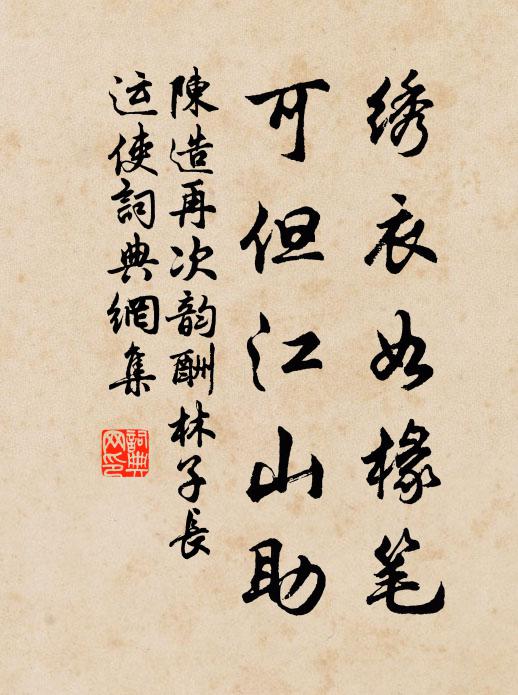 绣衣如椽笔
可但江山助
陳造再次韵酬林子長
运使詞典網集
詞典网印